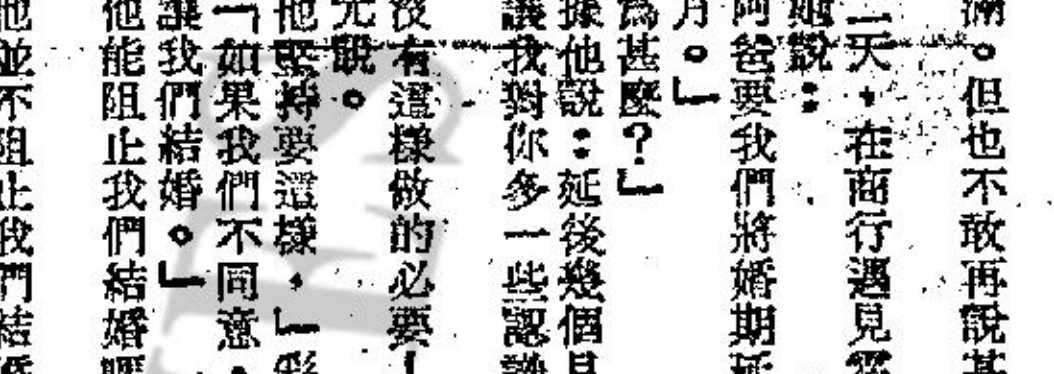 滿。但也不敢再說甚
二天,在商行遇見
她說:
阿爸要我們將婚期延
月。」
為甚麼?」
據他說:延後幾個月
議我對你多一些認識
沒有這樣做的必要!
元說。
他堅持要這樣,」彩
「如果我們不同意,
讓我們結婚。」
他能阻止我們結婚嗎
他並不阻止我們結婚